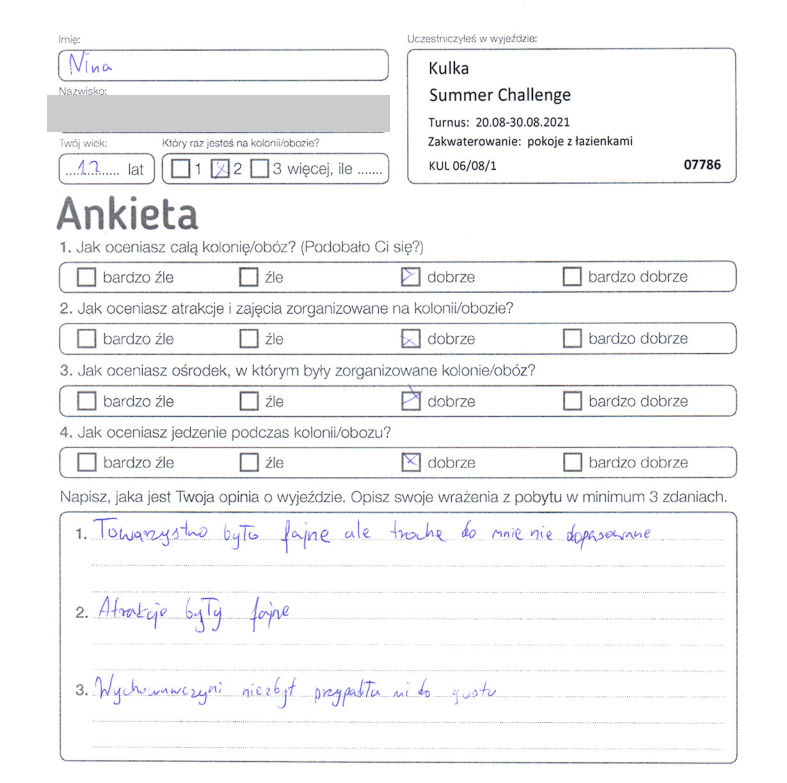 Imię:
Nina
Nazwisko:
Twój wiek:
12 lat
Który raz jesteś na kolonii/obozie?
1 2 3 więcej, ile .......
Uczestniczyłeś w wyjeździe:
Kulka
Summer Challenge
Turnus: 20.08-30.08.2021
Zakwaterowanie: pokoje z łazienkami
KUL 06/08/1 07786
Ankieta
1. Jak oceniasz całą kolonię/obóz? (Podobało Ci się?)
bardzo źle źle dobrze bardzo dobrze
2. Jak oceniasz atrakcje i zajęcia zorganizowane na kolonii/obozie?
bardzo źle źle dobrze bardzo dobrze
3. Jak oceniasz ośrodek, w którym były zorganizowane kolonie/obóz?
bardzo źle źle dobrze bardzo dobrze
4. Jak oceniasz jedzenie podczas kolonii/obozu?
bardzo źle źle dobrze bardzo dobrze
Napisz, jaka jest Twoja opinia o wyjeździe. Opisz swoje wrażenia z pobytu w minimum 3 zdaniach.
1. Towarzystwo było fajne ale trochę do mnie nie dopasowane
2. Atrakcje były fajne
3. Wychowawczyni niezbyt przypadła mi do gustu